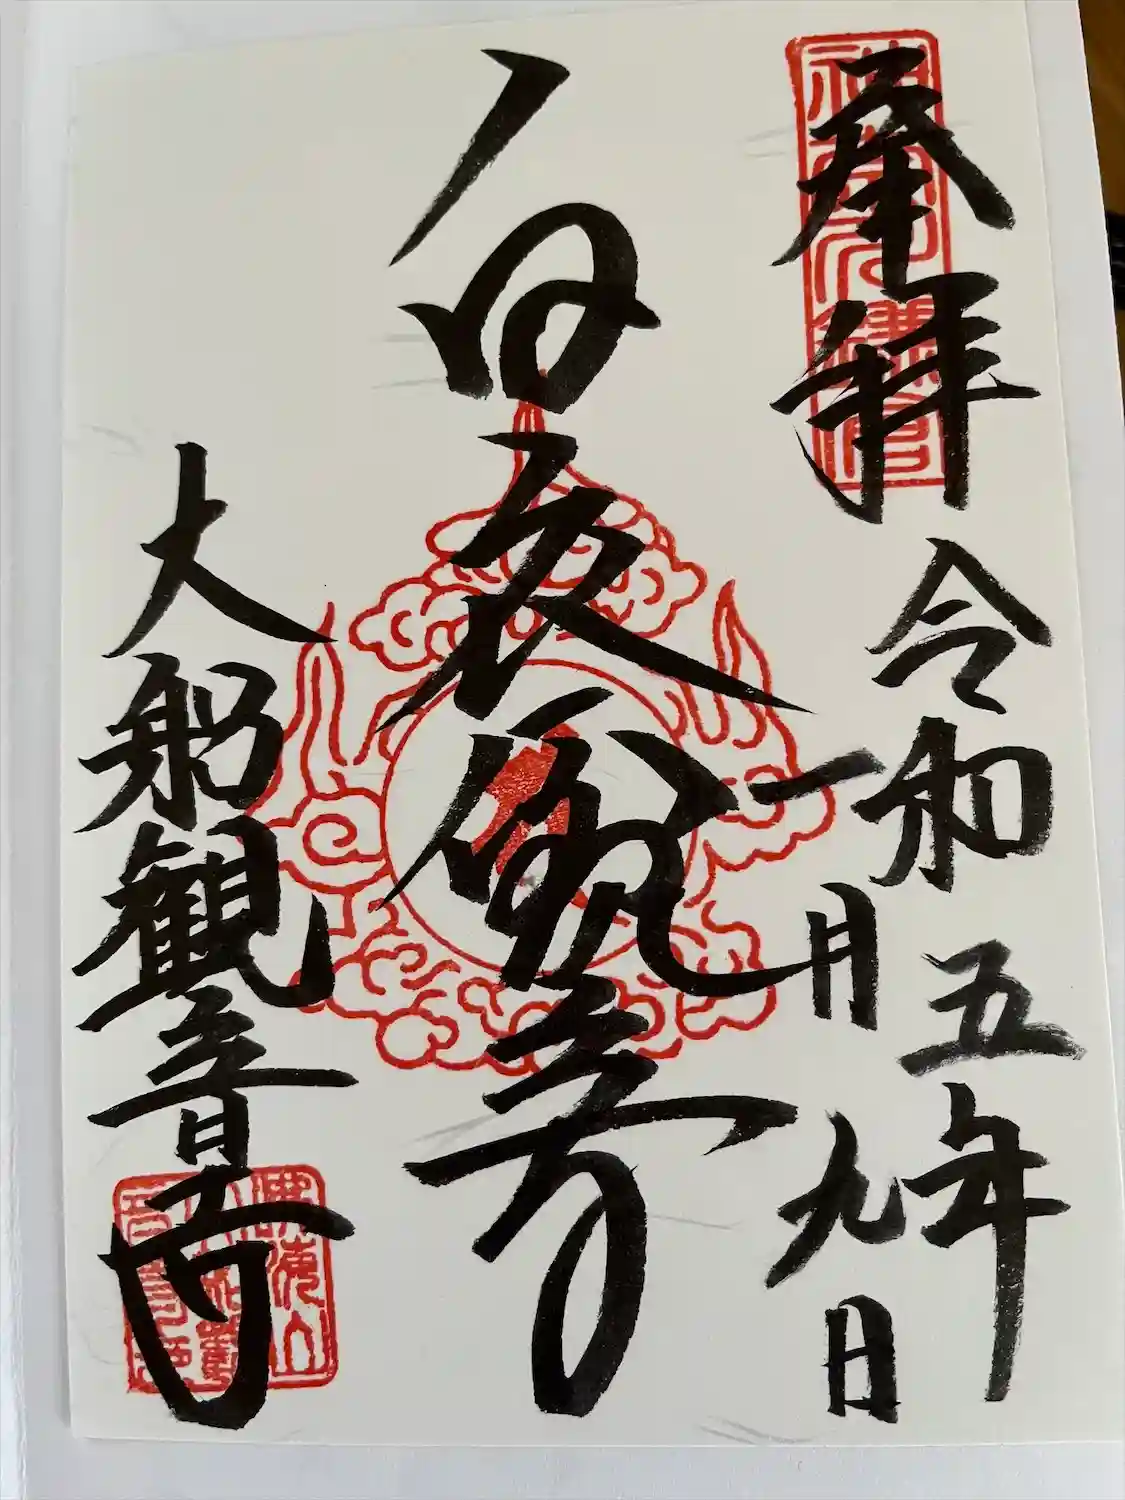 奉拝
令和五年
一月九日
白衣観音
大船観音寺